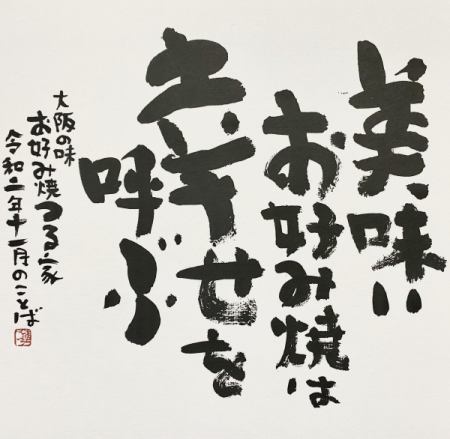 美味い
お好み焼は
幸せを
呼ぶ
大阪の味
お好み焼つる家
令和二年十一月のことば